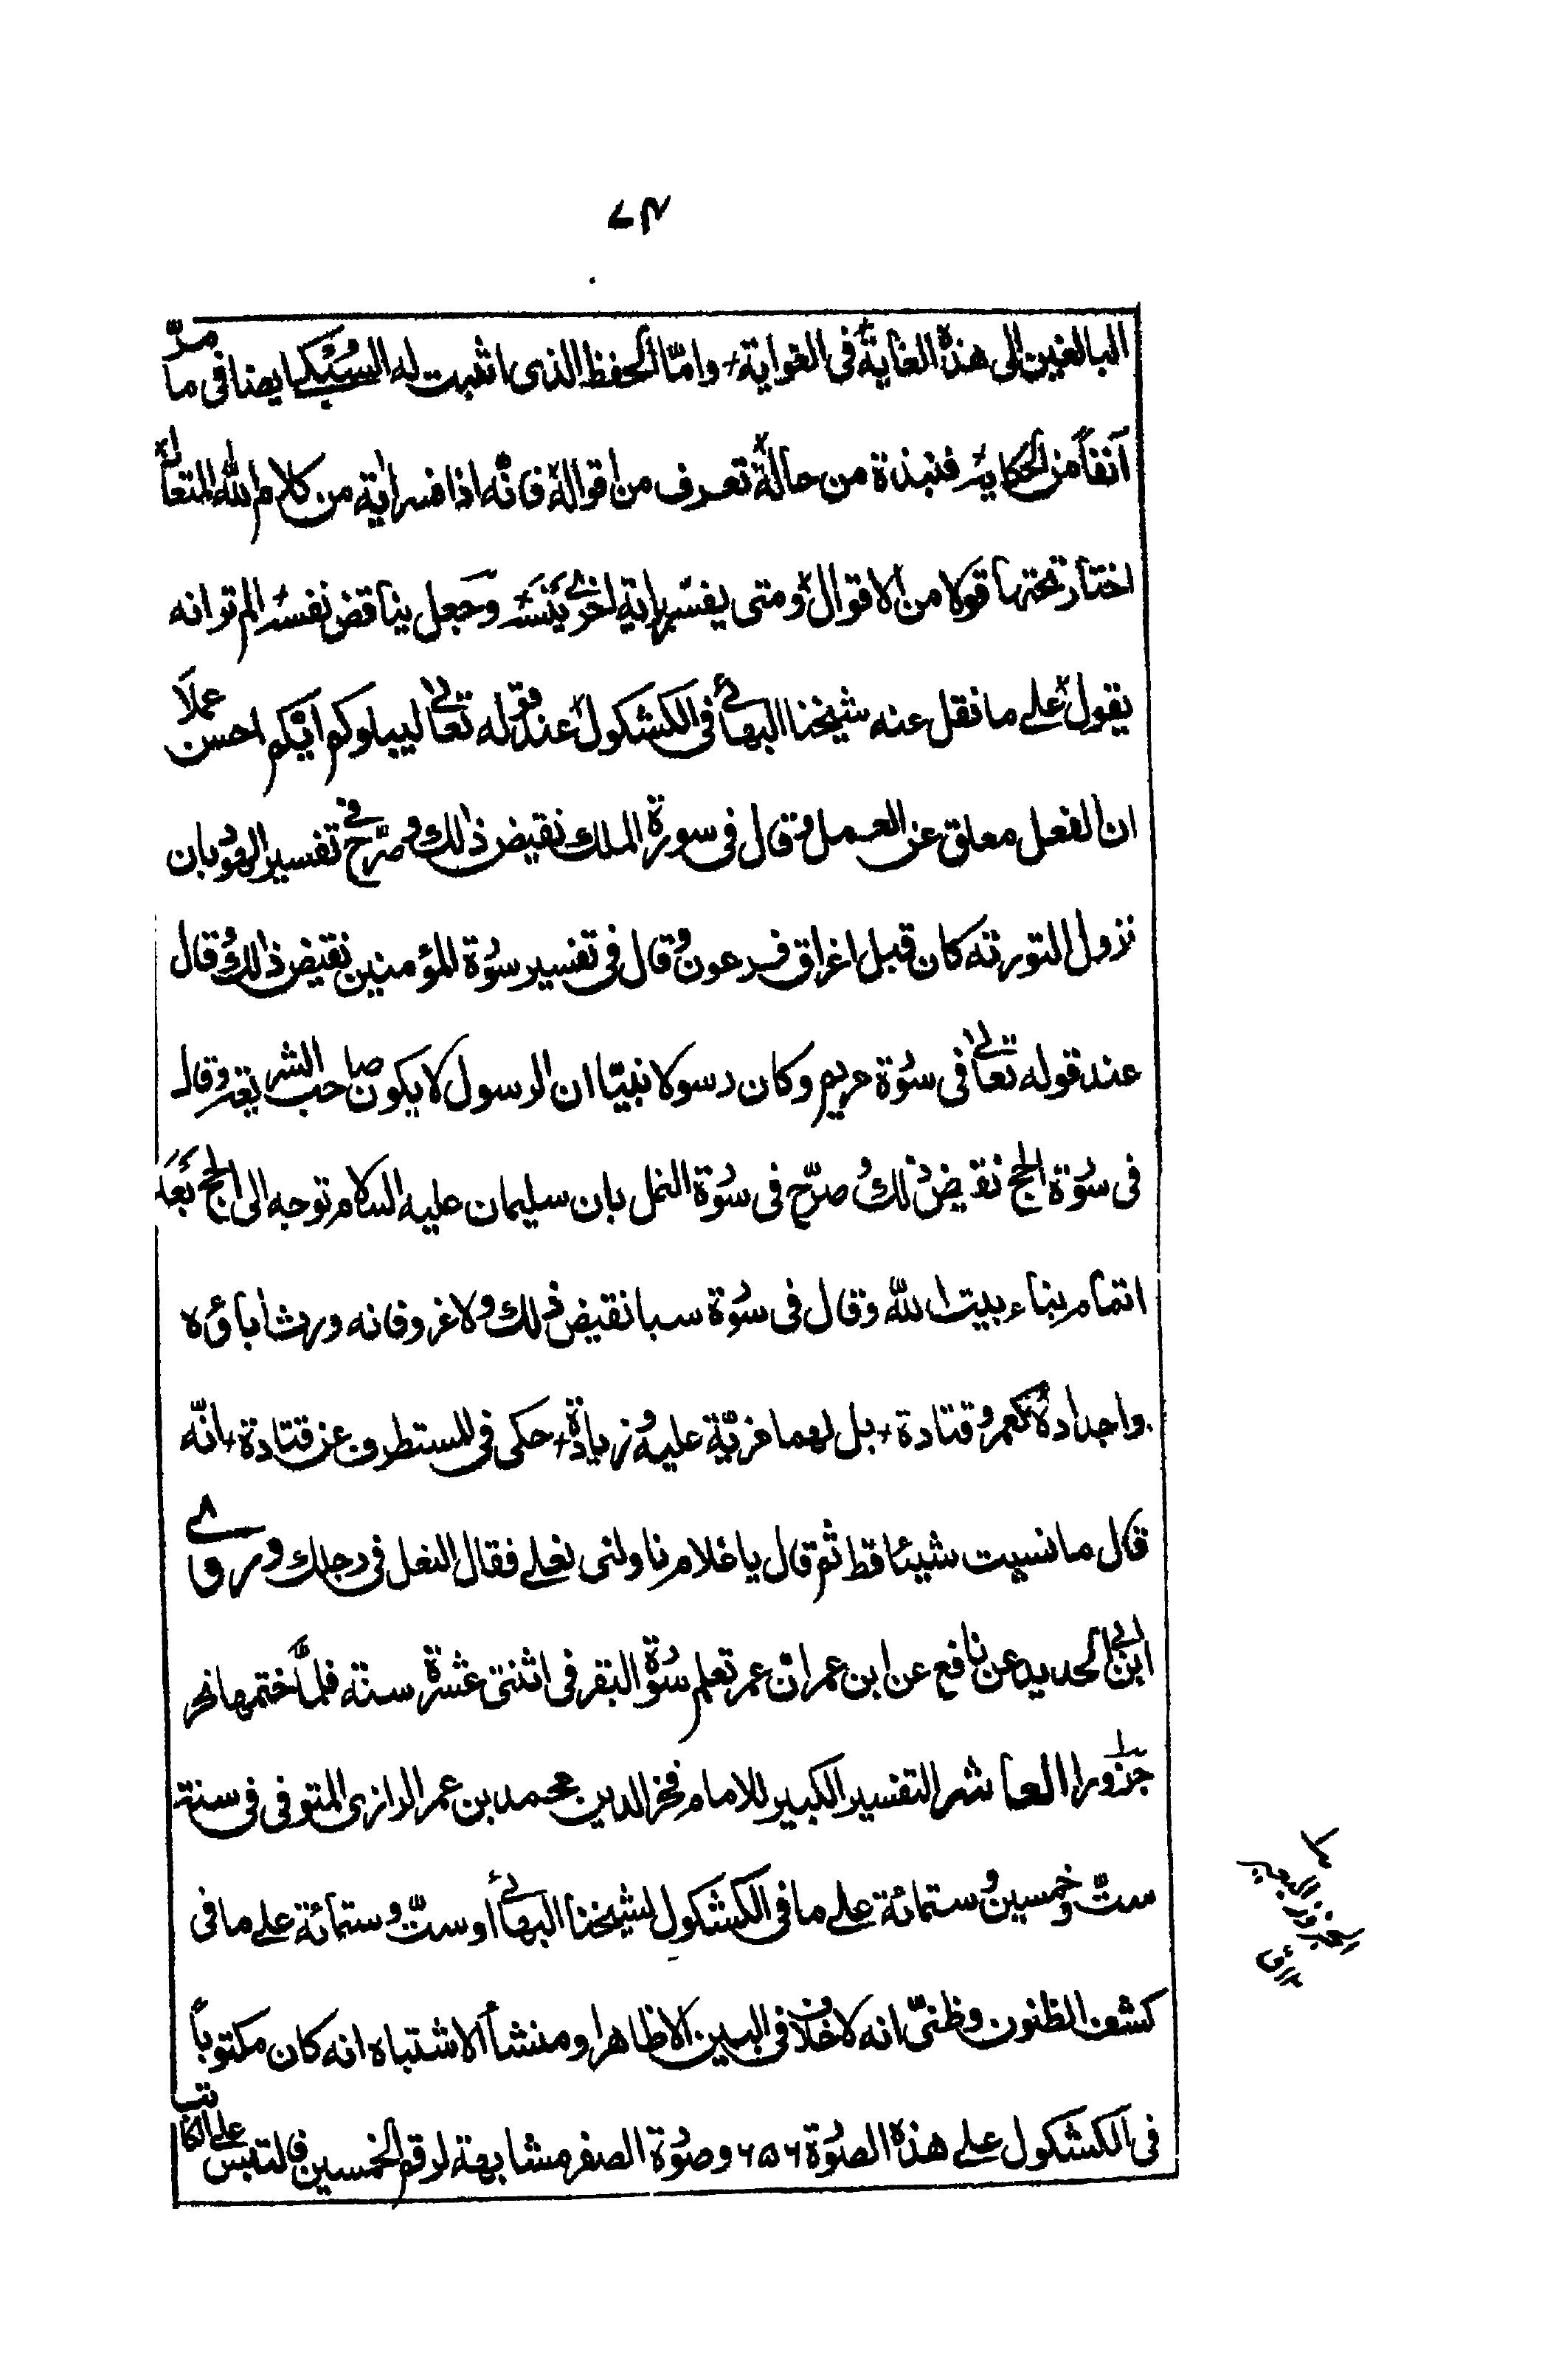 ٧٤
البالغين الى هذه الغاية في الغواية + وامّا الحفظ الذي اثبت له السُّبْكي ينافي ما مرّ
آنفاً من الحكاية فنبذة من حاله تعرف من اقواله فانّه اذا فسر اية من كلام الله المتعال
اختار تحتها قولا من الاقوال ومتى يفسّر باية اخرى يَنسَه وجعل يناقض نفسه الم تر انه
يقول على ما نقل عنه شيخنا البهائي في الكشكول عند قوله تعالى ليبلوكم ايّكم احسن عملاً
ان الفعل معلق عن العمل وقال في سورة الملك نقيض ذلك وصرّح في تفسير الهود بان
نزول التورته كان قبل اغراق فرعون وقال في تفسير سورة المؤمنين نقيض ذلك وقال
عند قوله تعالى في سورة مريم وكان رسولا نبيّا ان الرسول لا يكون صاحب الشريعة وقال
في سورة الحج نقيض ذلك وصرّح في سورة النمل بان سليمان عليه السلام توجه الى الحج بَعد
اتمام بناء بيت الله وقال في سورة سبا نقيض ذلك ولا غرو فانه ورث اباؤه
واجداده كعمر وقتادة + بل لهما مزيّة عليه وزيادة + حكى في المستطرف عن قتادة + انّه
قال ما نسيت شيئا قط ثم قال يا غلام ناولني نعلي فقال النعل في رجلك وروى
ابن ابي الحديد عن نافع عن ابن عمر انّ عمر تعلم سورة البقر في اثنتي عشرة سنة فلمّا ختمها نحر
جزورا العاشر التفسير الكبير للامام فخر الدين محمد بن عمر الرازي المتوفى في سنة
ستّ وخمسين وستمائة على ما في الكشكول لشيخنا البهائي او ستّ وستمائة على ما في
كشف الظنون وظنّي انه لا خلاف في البين الا ظاهرا ومنشأ الاشتباه انه كان مكتوباً
في الكشكول على هذه الصورة ٦٥٦ وصورة الصفر مشابهة لرقم الخمسين فالتبس على الكاتب